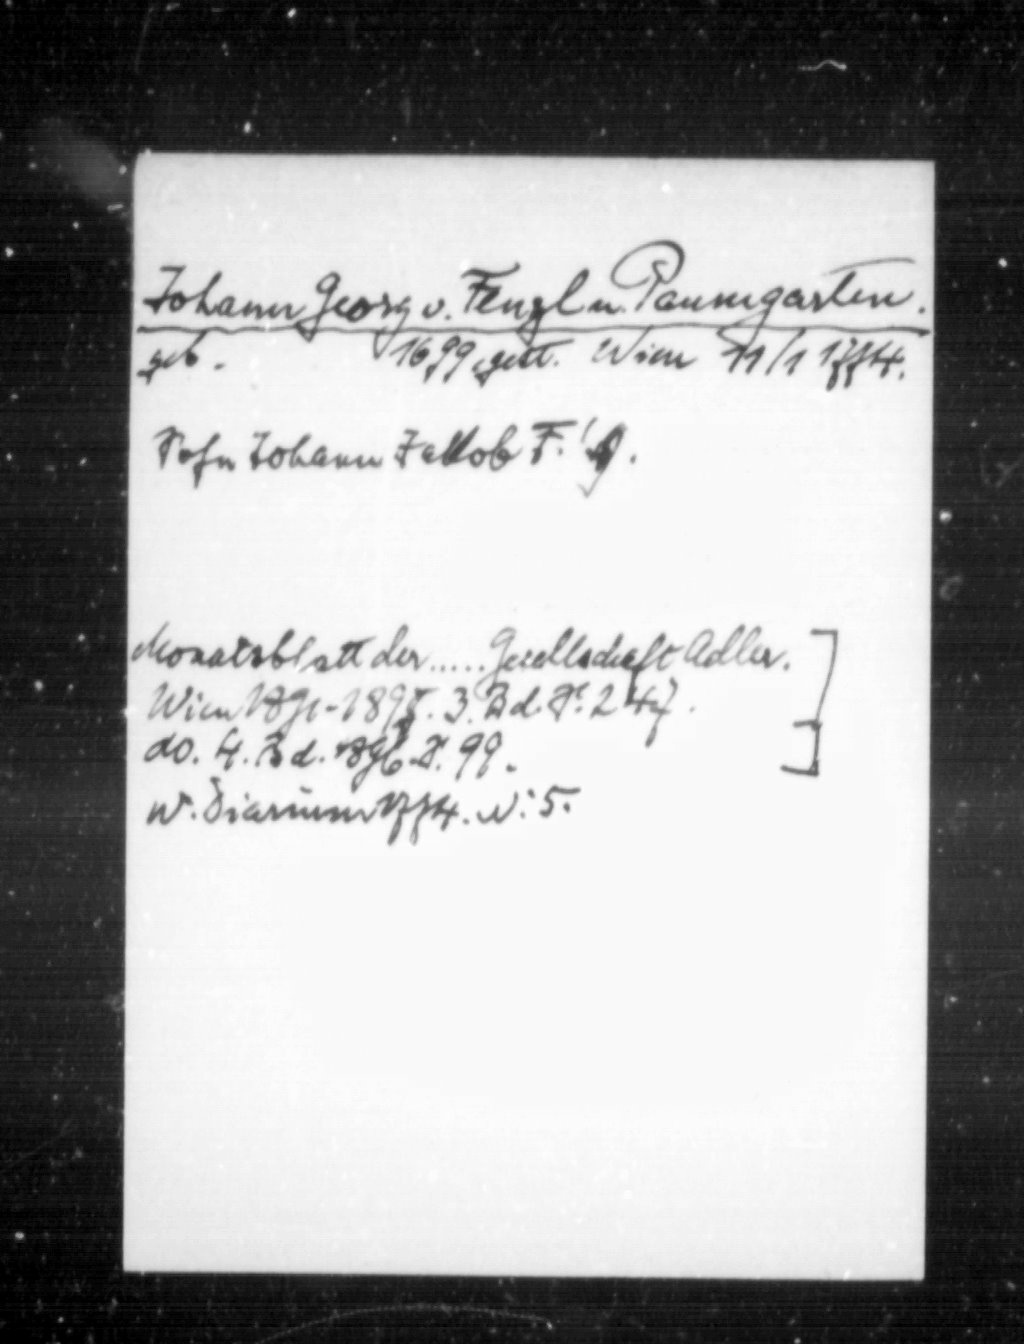 Johann Georg v. Fenzl u. Paumgarten.
geb. 1699, gest. Wien 11/1 1774.
Sohn Johann Jakob F.'s.
Monatsblatt der ..... Gesellschaft Adler.
Wien 1891-1895. 3. Bd. S. 247.
do. 4. Bd. 1896. S. 99.
W. Diarium 1774. N: 5.